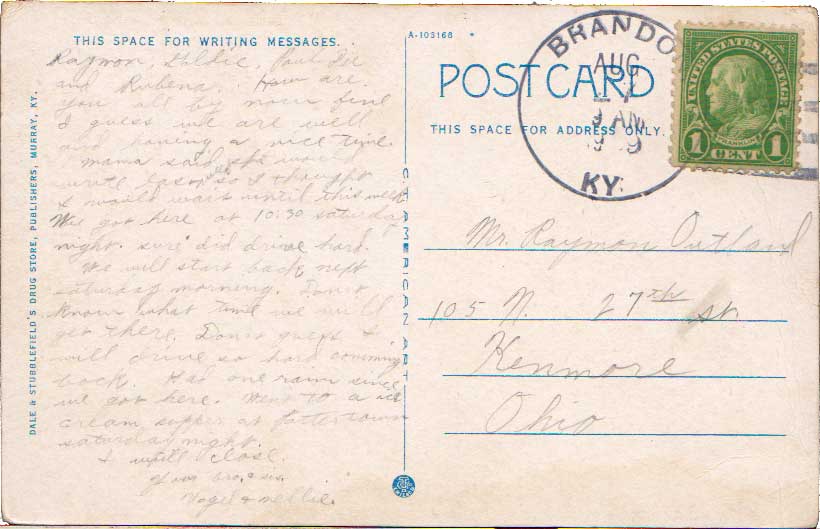 THIS SPACE FOR WRITING MESSAGES.
Raymon, Goldie, Paul Lee
and Rubena. How are
you all by now fine
I guess. we are well
and having a nice time.
mama said she would
write last week so I thought
I would wait until this week
We got here at 10:30 saturday
night. sure did drive hard.
We will start back next
saturday morning. Don't
know what time we will
get there. Don't guess I
will drive so hard comming
back. Had one rain since
we got here. Went to a ice
cream supper at Pottertown
saturday night.
I will close.
your bro. & sis.
Vogel & nellie.
DALE & STUBBLEFIELD'S DRUG STORE, PUBLISHERS, MURRAY, KY.
C.T. AMERICAN ART
A-103168
POSTCARD
THIS SPACE FOR ADDRESS ONLY.
BRANDO
AUG
9 AM
KY.
UNITED STATES POSTAGE
FRANKLIN
1 CENT 1
Mr. Raymon Outland
105 N. 27th st
Kenmore
Ohio